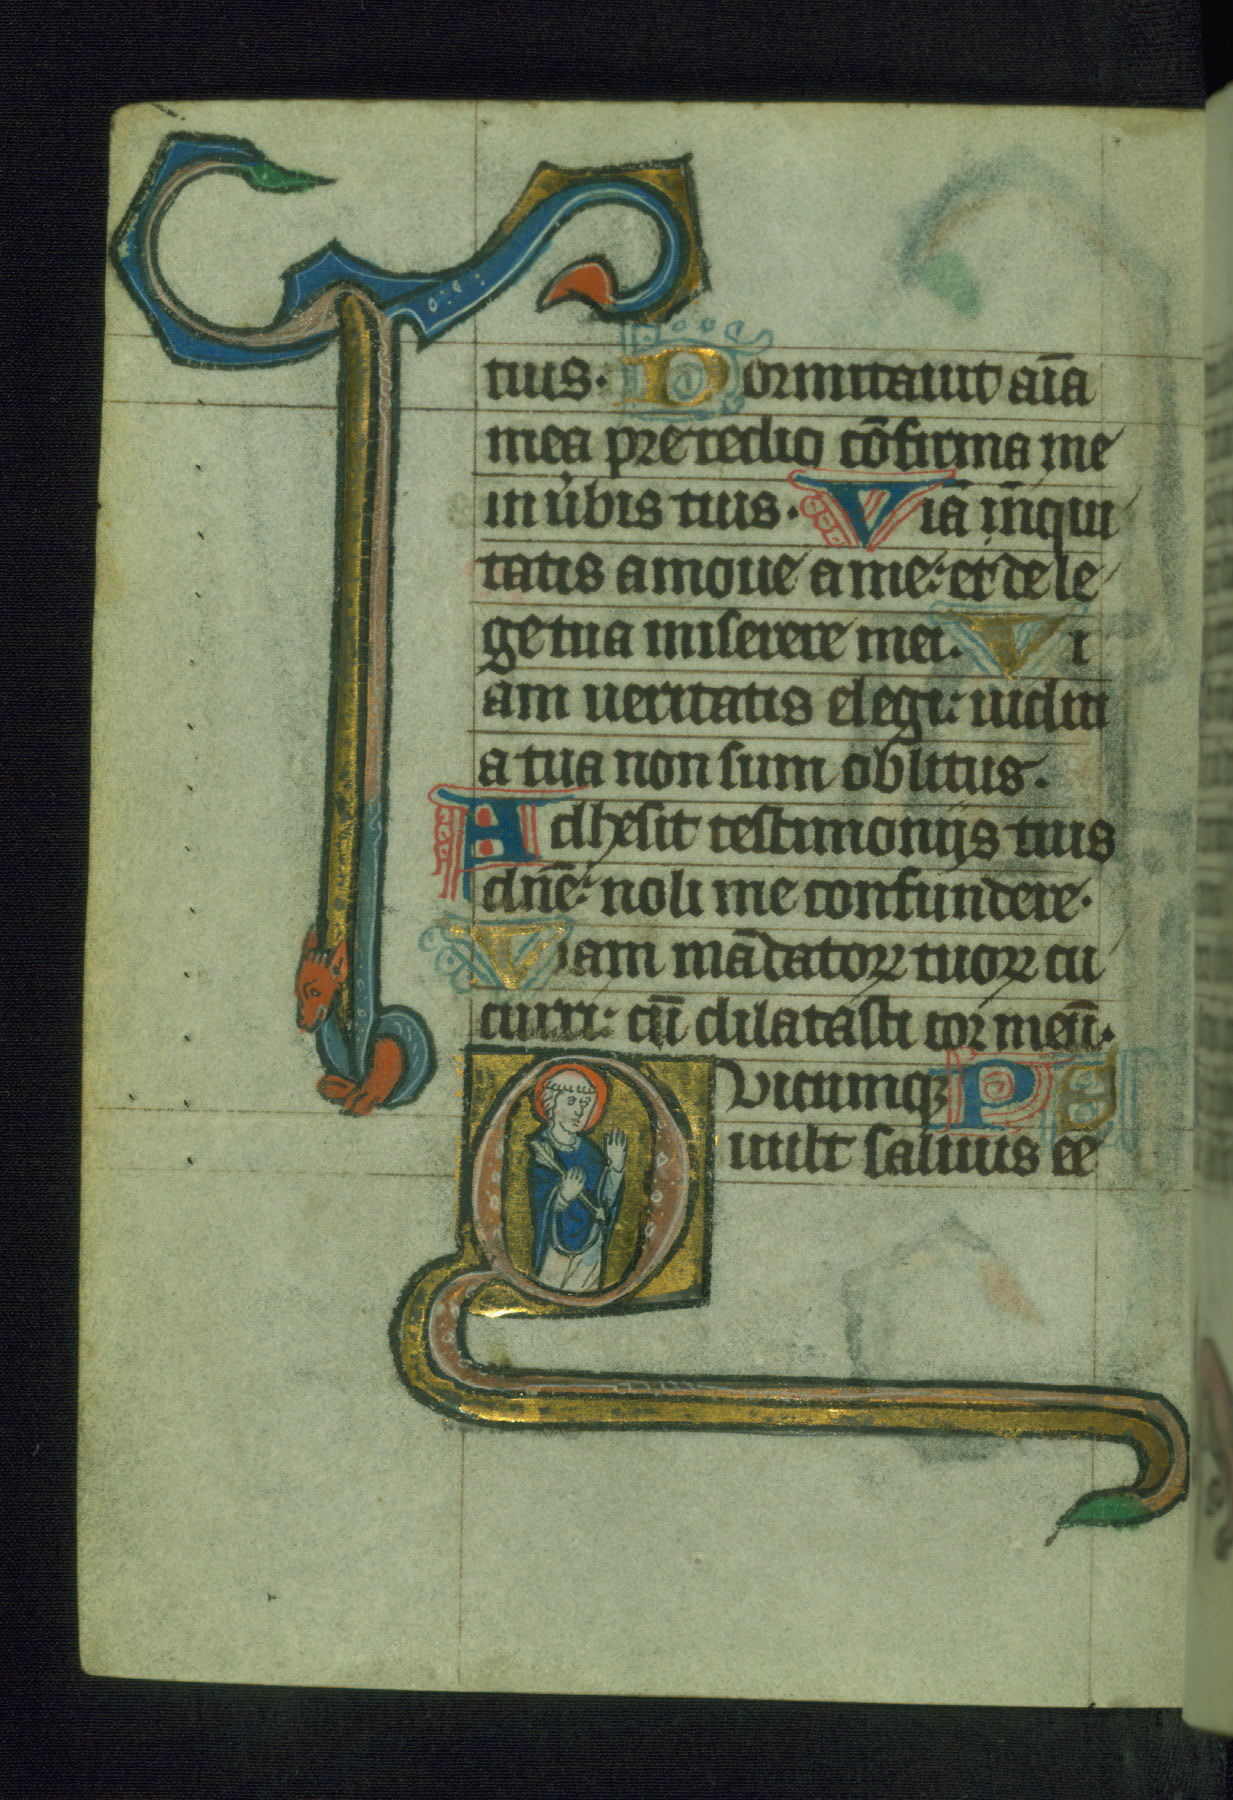 tuis. Dormitauit aīa
mea pre tedio cōfirma me
in ūbis tuis. Viā īn̄qui
tatis amoue a me: et de le
ge tua miserere mei. Vi
am ueritatis elegi: iudici
a tua non sum oblitus.
Adhesit testimonijs tuis
dn̄e: noli me confundere.
Viam mādatoꝝ tuoꝝ cu
curri: cū dilatasti cor meū.
Quicumqꝫ Ps
uult saluus ee